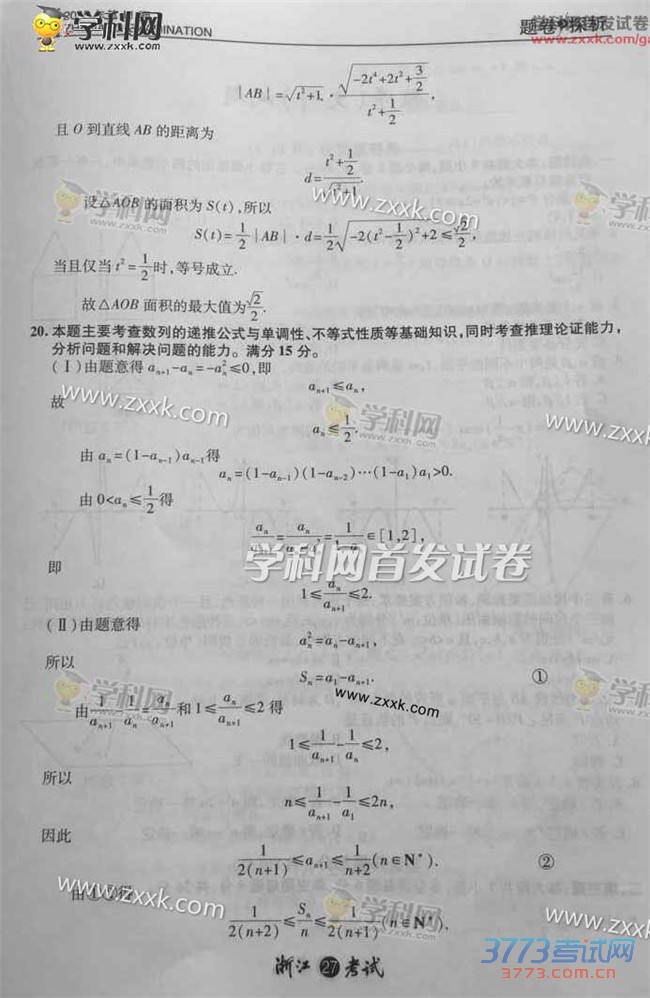 学科网
www.zxxk.com
MINATION
题卷 探析
学科网首发试卷
www.zxxk.com/ga
|AB|=√(t²+1)·√(-2t⁴+2t²+3/2)/(t²+1/2),
且 O 到直线 AB 的距离为
d=(t²+1/2)/√(t²+1).
设△AOB 的面积为 S(t),所以
S(t)=1/2|AB|·d=1/2√(-2(t²-1/2)²+2)≤√2/2,
当且仅当 t²=1/2时,等号成立.
故△AOB 面积的最大值为√2/2.
20. 本题主要考查数列的递推公式与单调性、不等式性质等基础知识,同时考查推理论证能力,
分析问题和解决问题的能力。满分 15 分。
(Ⅰ)由题意得 aₙ₊₁-aₙ=-aₙ²≤0,即
aₙ₊₁≤aₙ,
故
aₙ≤1/2.
由 aₙ=(1-aₙ₋₁)aₙ₋₁得
aₙ=(1-aₙ₋₁)(1-aₙ₋₂)…(1-a₁)a₁>0.
由 0<aₙ≤1/2得
∈[1,2],
学科网首发试卷
即
1≤aₙ/aₙ₊₁≤2.
(Ⅱ)由题意得
aₙ²=aₙ-aₙ₊₁,
所以
Sₙ=a₁-aₙ₊₁. ①
由1/aₙ₊₁-1/aₙ=aₙ/aₙ₊₁和 1≤aₙ/aₙ₊₁≤2 得
1≤1/aₙ₊₁-1/aₙ≤2,
所以
n≤1/aₙ₊₁-1/a₁≤2n,
因此
1/2(n+1)≤aₙ₊₁≤1/(n+2)(n∈N*). ②
由①②得
1/2(n+2)≤Sₙ/n≤1/2(n+1)(n∈N*).
浙江 27 考试
3773考试网
3773.com.cn